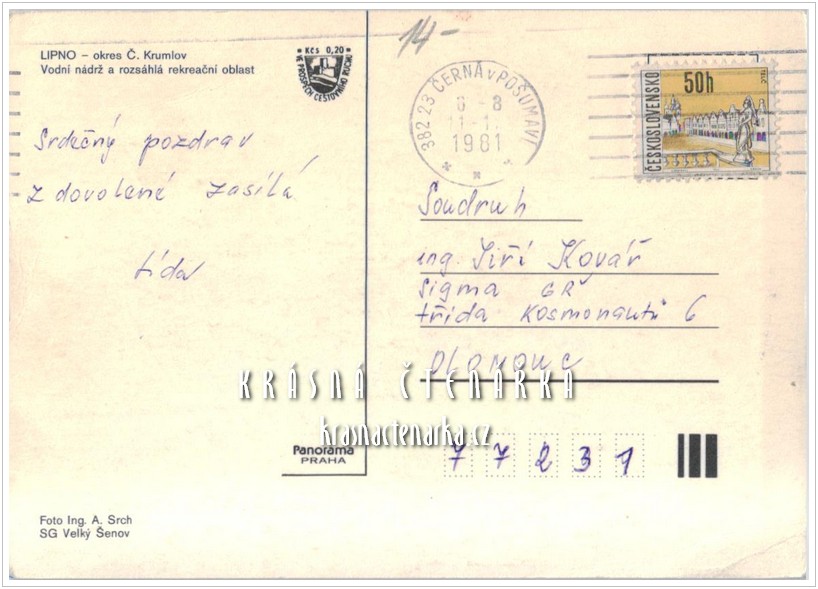 LIPNO – okres Č. Krumlov
Vodní nádrž a rozsáhlá rekreační oblast
Kčs 0,20
VE PROSPĚCH CESTOVNÍHO RUCHU
14-
382 23 ČERNÁ v POŠUMAVÍ
-8
11-1.
1981
ČESKOSLOVENSKO
50h
TELČ
Srdečný pozdrav
z dovolené zasílá
Lída
Soudruh
ing. Jiří Kovář
Sigma GŘ
třída Kosmonautů 6
OLOMOUC
KRÁSNÁ ČTENÁŘKA
krasnactenarka.cz
77231
Panorama
PRAHA
Foto Ing. A. Srch
SG Velký Šenov